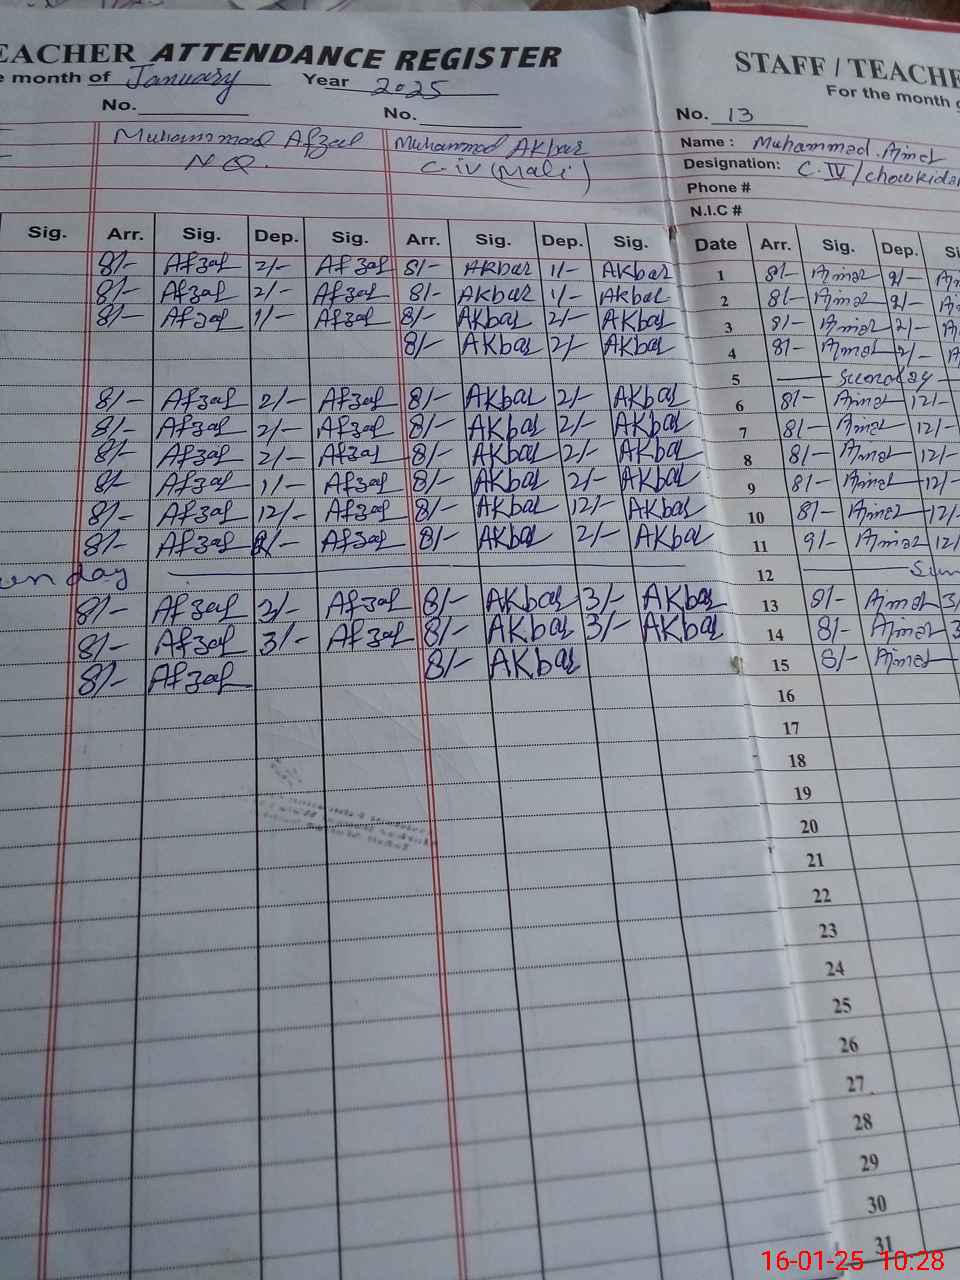 TEACHER ATTENDANCE REGISTER
e month of January Year 2025
No. No.
Muhammad Afzal Muhammad Akbar
N.Q. C-iv (Mali)
Sig. Arr. Sig. Dep. Sig. Arr. Sig. Dep. Sig.
8/- Afzal 2/- Afzal 8/- AKbar 1/- AKbar
8/- Afzal 2/- Afzal 8/- AKbar 1/- AKbar
8/- Afzal 1/- Afzal 8/- AKbar 2/- AKbar
8/- AKbar 2/- AKbar
8/- Afzal 2/- Afzal 8/- AKbar 2/- AKbar
8/- Afzal 2/- Afzal 8/- AKbar 2/- AKbar
8/- Afzal 2/- Afzal 8/- AKbar 2/- AKbar
8/- Afzal 1/- Afzal 8/- AKbar 2/- AKbar
8/- Afzal 12/- Afzal 8/- AKbar 12/- AKbar
8/- Afzal 2/- Afzal 8/- AKbar 2/- AKbar
unday
8/- Afzal 3/- Afzal 8/- AKbar 3/- AKbar
8/- Afzal 3/- Afzal 8/- AKbar 3/- AKbar
8/- Afzal 8/- AKbar
STAFF / TEACHE
For the month
No. 13
Name : Muhammad Ajmal
Designation: C.IV/chowkidar
Phone #
N.I.C #
Date Arr. Sig. Dep. Si
1 8/- Ajmal 2/-
2 8/- Ajmal 2/-
3 8/- Ajmal 2/-
4 8/- Ajmal 2/-
5 Sunday
6 8/- Ajmal 12/-
7 8/- Ajmal 12/-
8 8/- Ajmal 12/-
9 8/- Ajmal 12/-
10 8/- Ajmal 12/-
11 9/- Ajmal 12/-
12 Sun
13 8/- Ajmal 3/
14 8/- Ajmal 3
15 8/- Ajmal
16
17
18
19
20
21
22
23
24
25
26
27
28
29
30
31
16-01-25 10:28